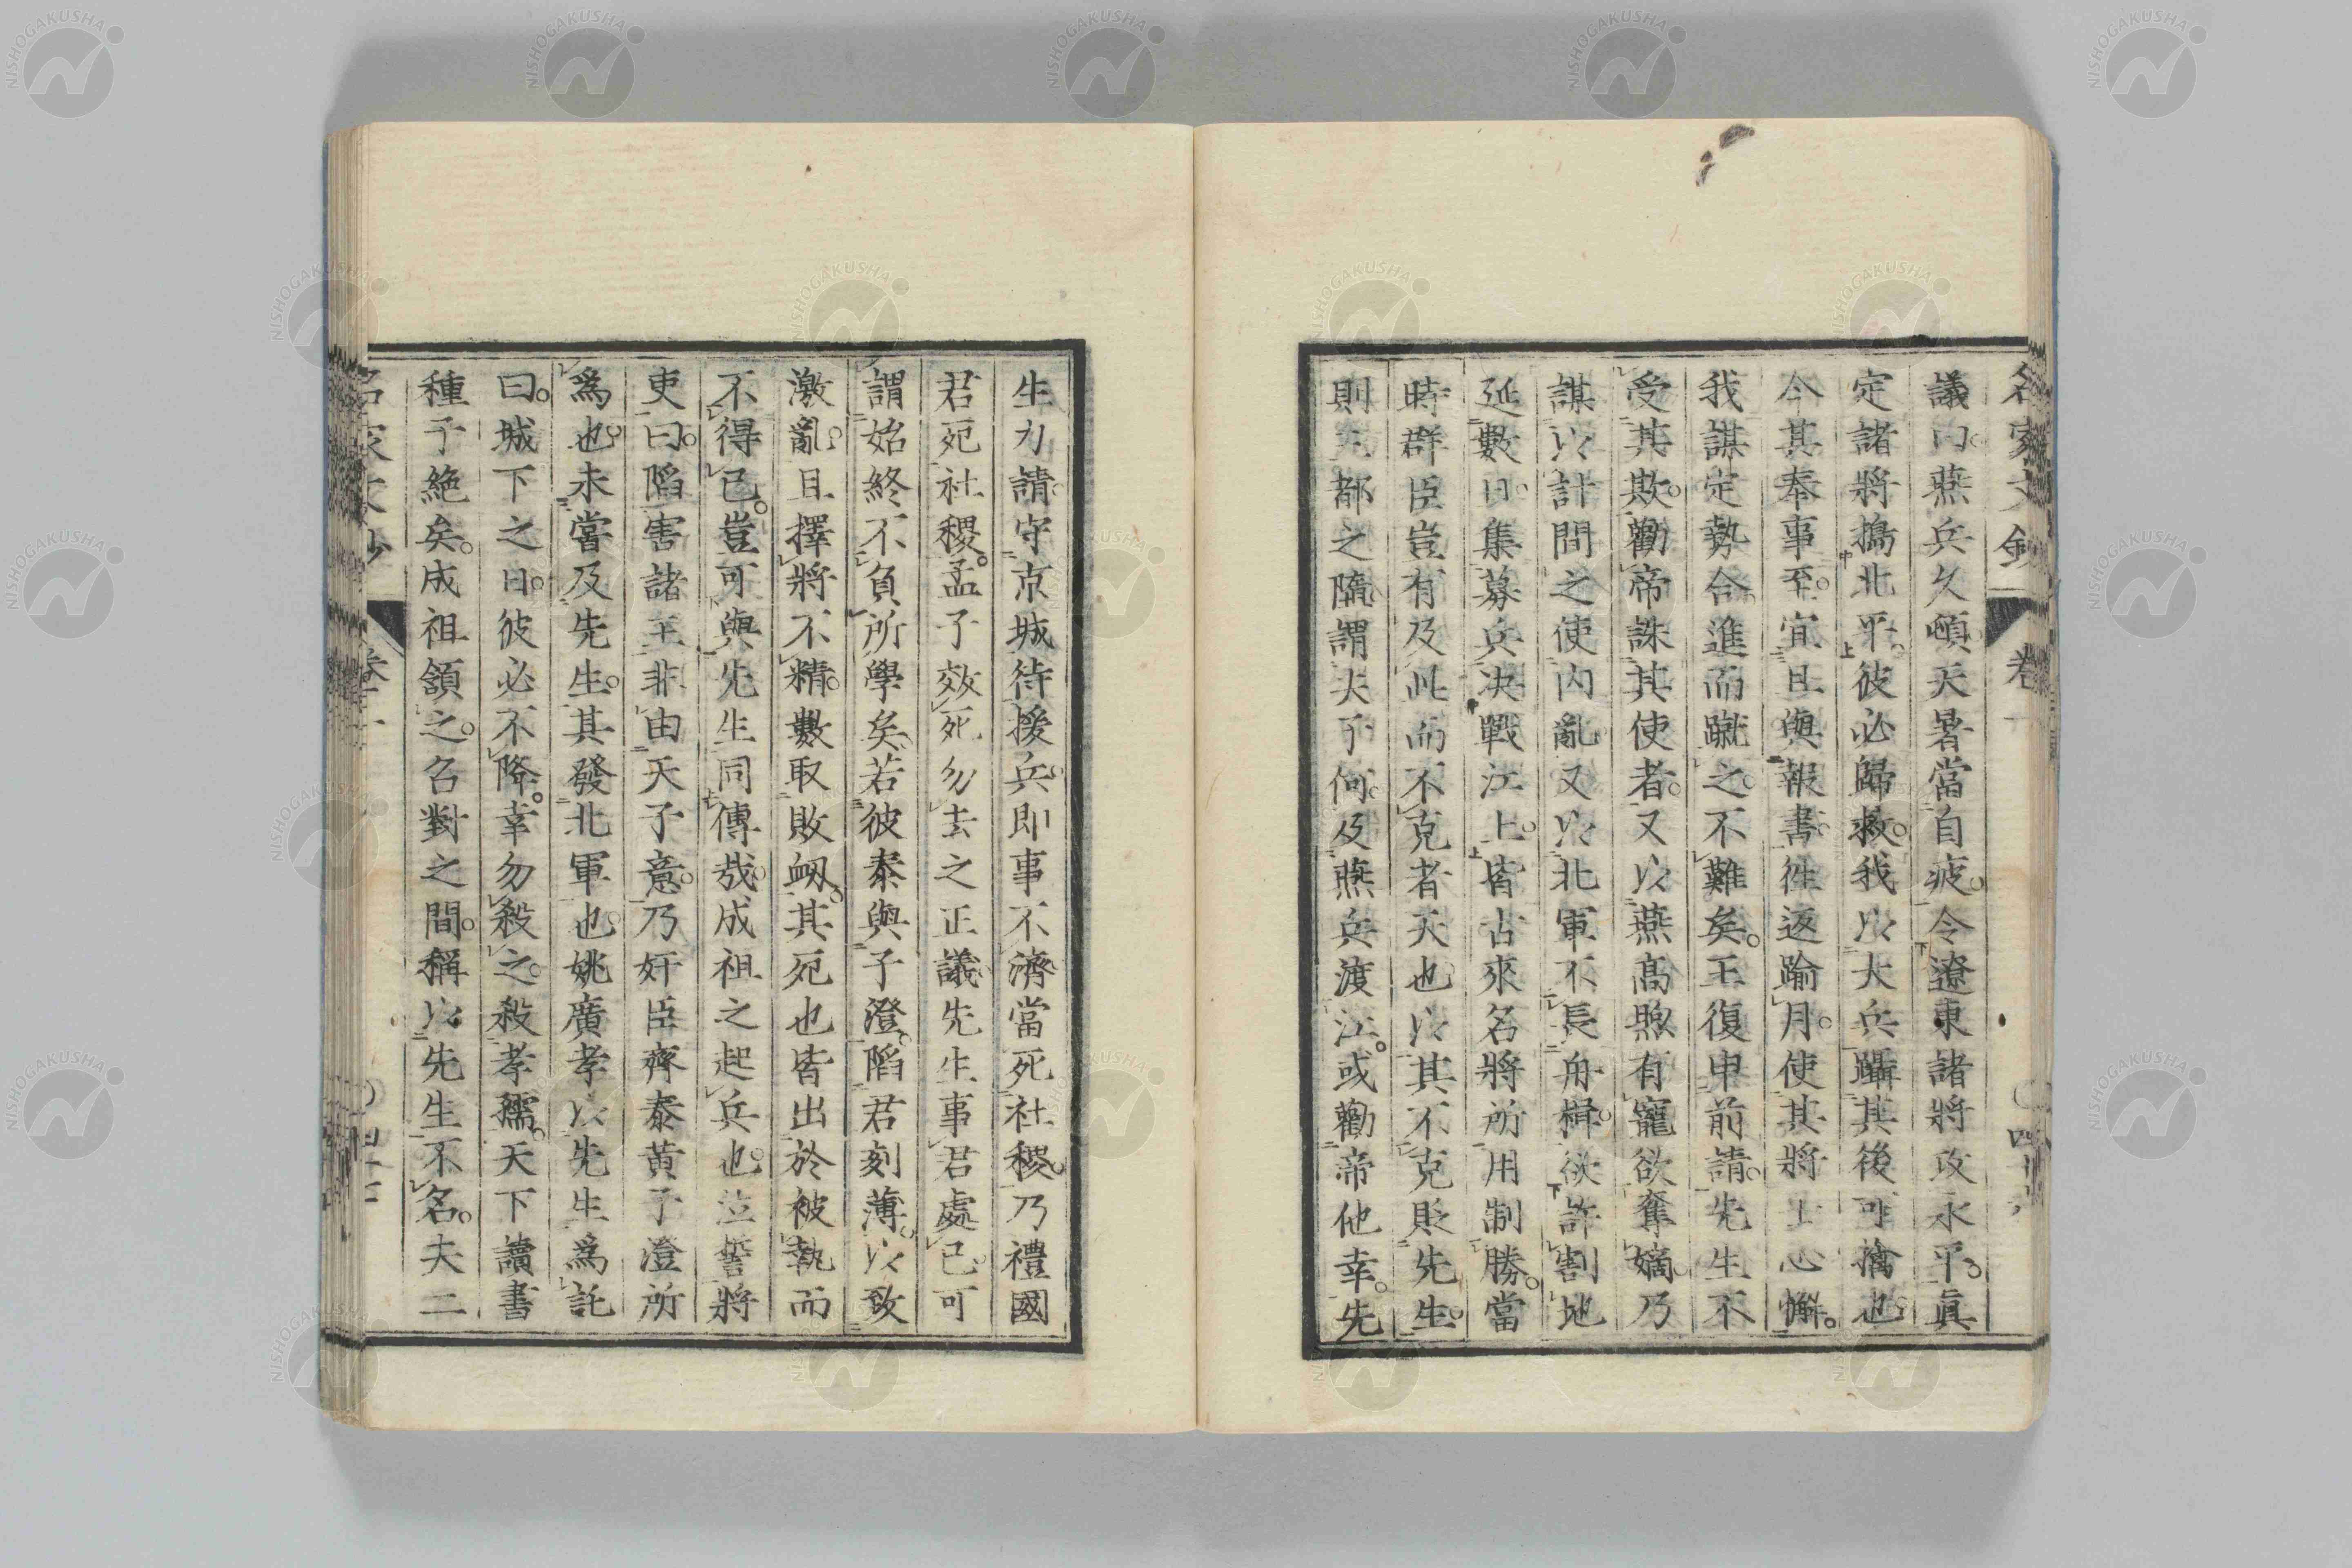 議曰燕兵久頓天暑當自疲令遼東諸將攻永平眞
定諸將搗北平彼必歸救我以大兵躡其後可擒也
今其奉事至宜且與報書徃返踰月使其將士心懈
我謀定勢合進而蹴之不難矣王復申前請先生不
受其欺勸帝誅其使者又以燕高煦有寵欲奪嫡乃
謀以計間之使内亂又以北軍不長舟楫欲許割地
延數日集募兵决戰江上皆古來名將所用制勝當
時群臣豈有及此而不克者天也以其不克貶先生
則元都之隨謂夫子何及燕兵渡江或勸帝他幸先
生力請守京城待援兵即事不濟當死社稷乃禮國
君死社稷孟子效死勿去之正議先生事君處已可
謂始終不負所學矣若彼泰與子澄陷君刻薄以致
激亂且擇將不精數取敗衂其死也皆出於被執而
不得已豈可與先生同傳哉成祖之起兵也泣誓將
吏曰陷害諸王非由天子意乃奸臣齊泰黃子澄所
爲也未嘗及先生其發北軍也姚廣孝以先生爲託
曰城下之日彼必不降幸勿殺之殺孝孺天下讀書
種子絶矣成祖頷之召對之間稱以先生不名夫二
NISHOGAKUSHA